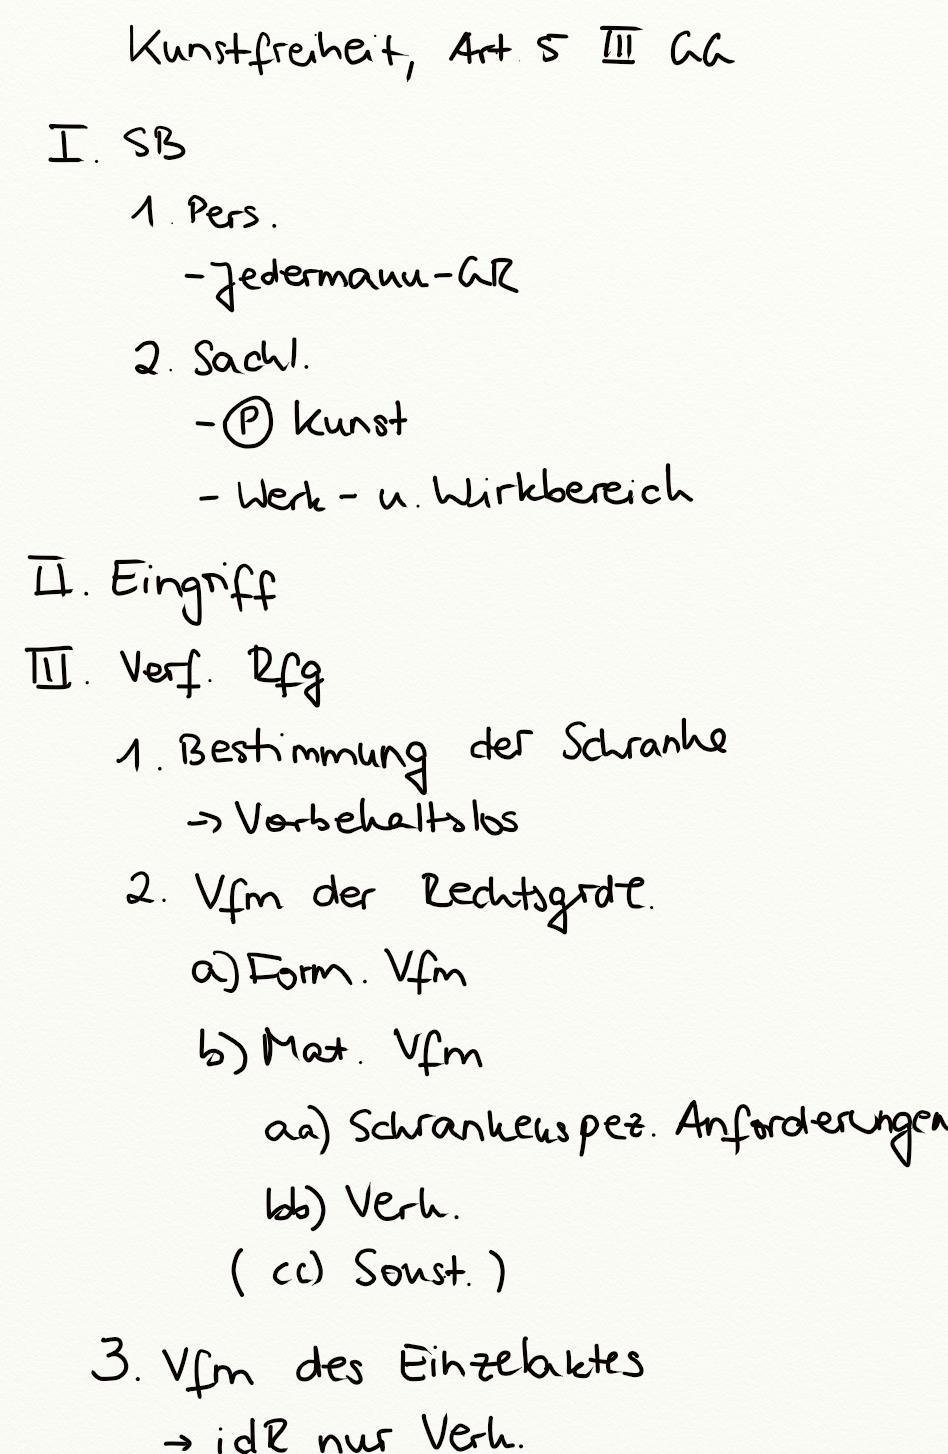 Kunstfreiheit, Art. 5 III GG
I. SB
1. Pers.
- Jedermann-GR
2. Sachl.
- Ⓟ Kunst
- Werk- u. Wirkbereich
II. Eingriff
III. Verf. Rfg
1. Bestimmung der Schranke
→ Vorbehaltslos
2. Vfm der Rechtsgrdl.
a) Form. Vfm
b) Mat. Vfm
aa) Schrankenspez. Anforderungen
bb) Verh.
( cc) Sonst. )
3. Vfm des Einzelaktes
→ idR nur Verh.